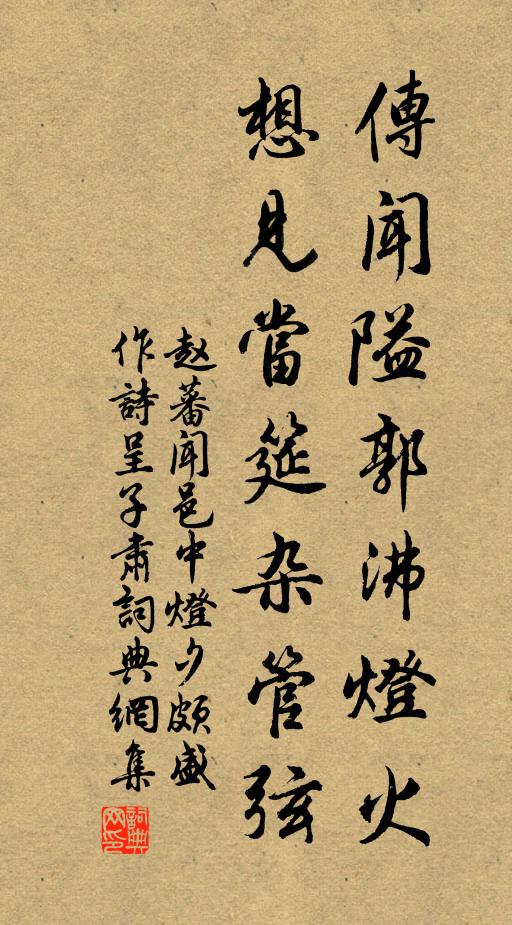 傳聞隘郭沸燈火
想見當筵杂管弦
赵蕃聞邑中燈夕頗盛
作詩呈子肅詞典網集
詞典網印